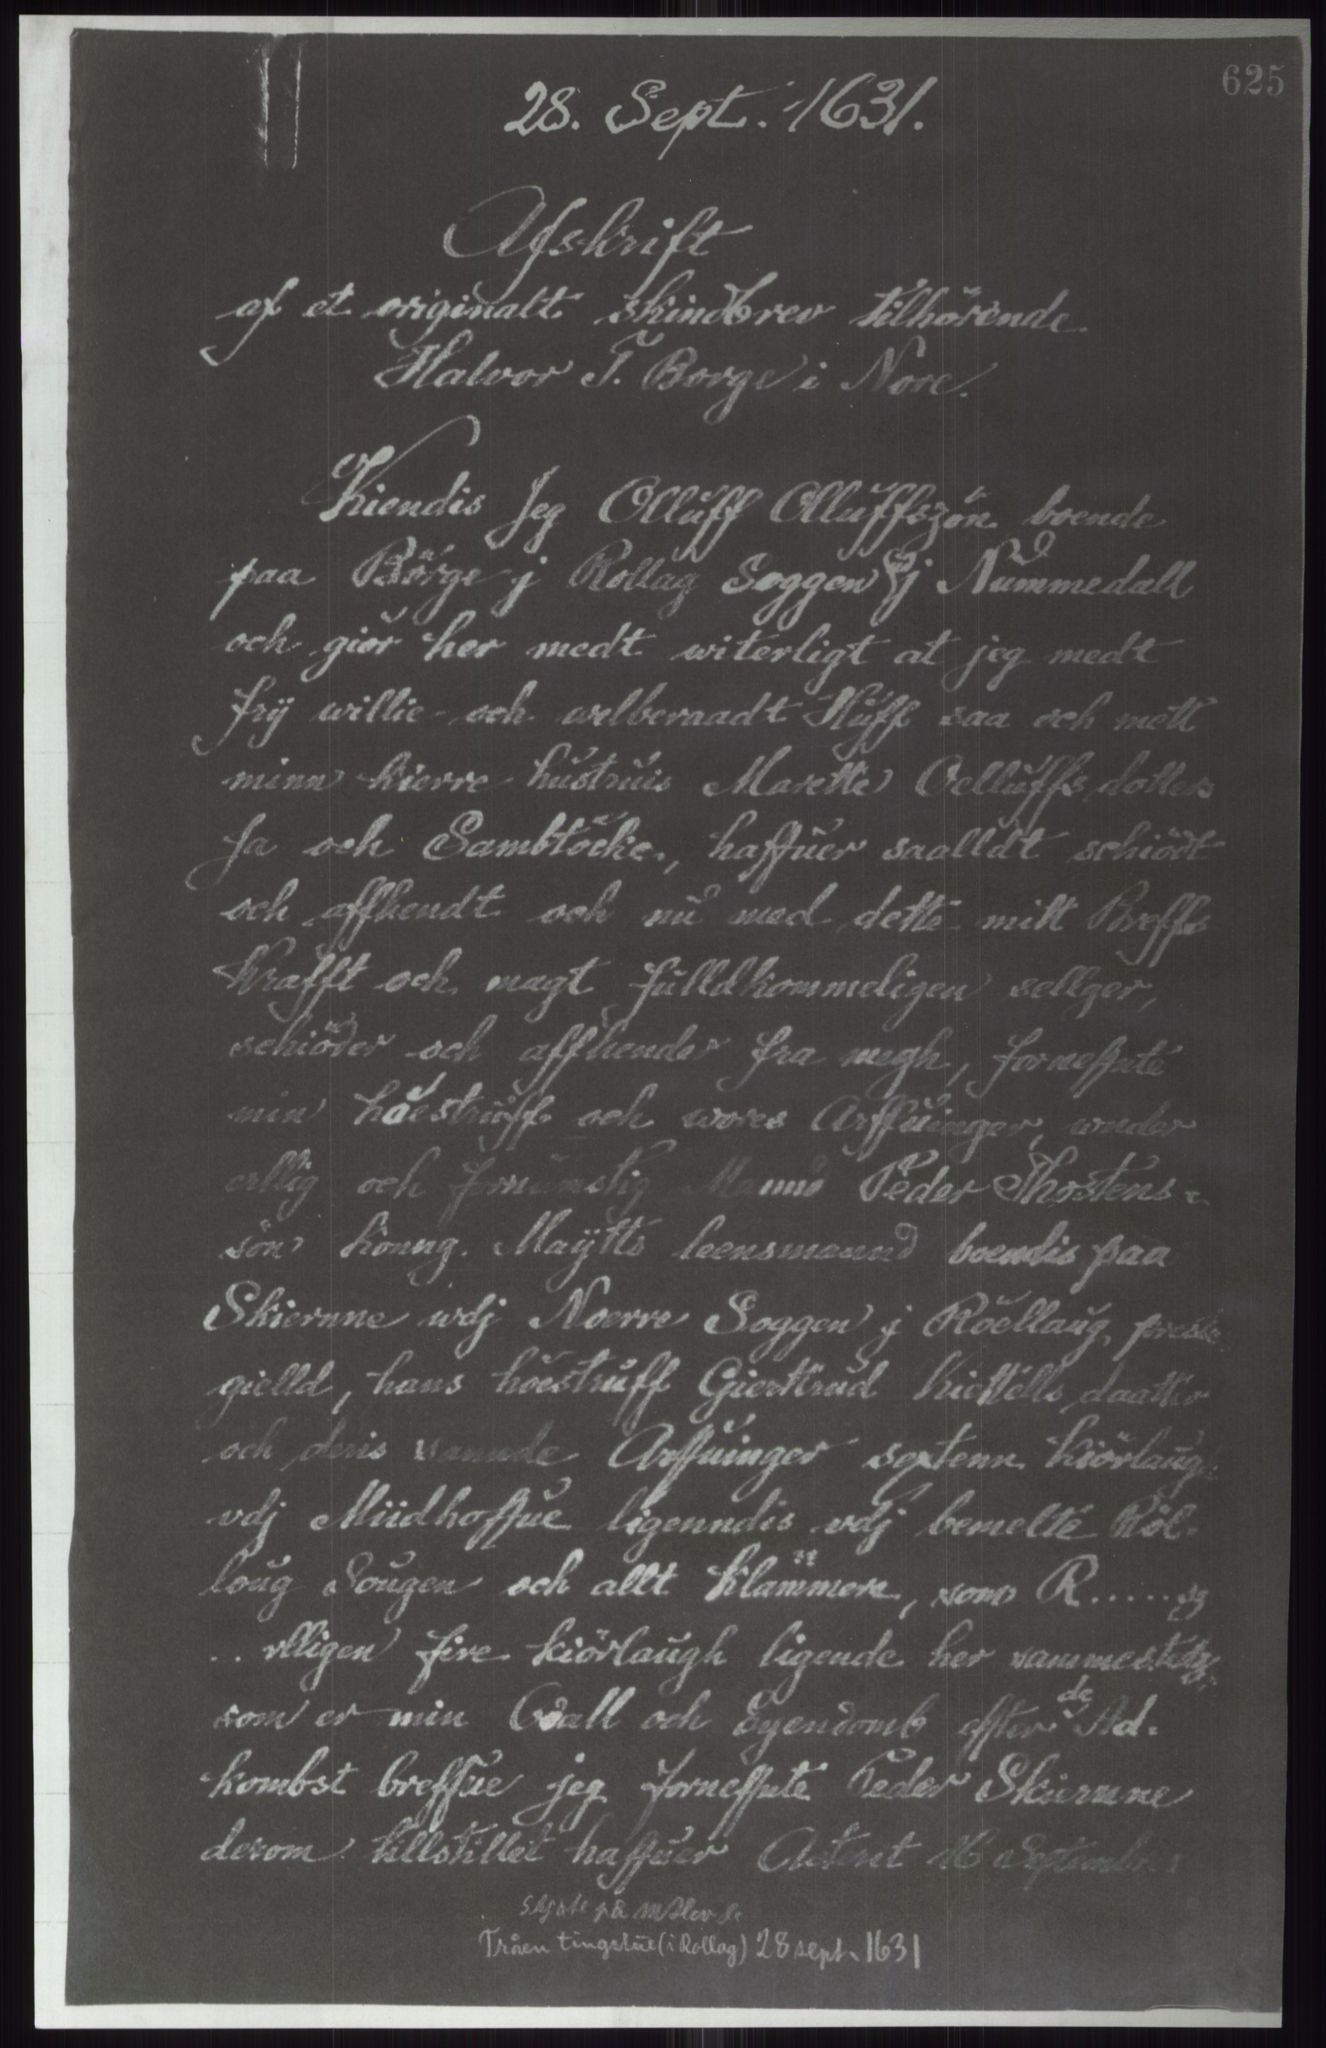 625
28. Sept. 1631.
Afskrift
af et originalt skindbrev tilhørende
Halvor T. Borge i Nore.
Kiendis Jeg Olluff Olluffszøn boende
paa Börge j Rollag Soggen Ej Nummedall
och giör her medt witerligt at jeg medt
frÿ willie och welberaadt Huff saa och mett
minn kierre hustruis Marette Oelluffs dotters
Ja och Sambtöcke, haffuer saalldt schiödt
och affhendt och nu med dette mitt Breffs
Krafft och magt fulldkommeligen sellger,
schiöder och affhender fra megh, forneffnte
min höestruff och wores Arffuinger, wnder
erllig och fornumstig Mannd Peder Thostens-
sön konng. Maÿtts leensmannd boendis paa
Skiernne wdj Noerre Soggen j Röellaug, preste
gielld, hans höestruff Giertrud Kiettells daatter
och deris sannde Arffuinger sextenn kiörlaug
vdj Miidhoffue ligenndis vdj bemelte Röl-
loug Sougen och allt Klammere, som R.....sz
.. rlligen fire kiörlaugh ligende her sammestetz,
som er min Odall och Eyendomb effter de Ad-
kombst breffue jeg forneffnte Peder Skiernne
derom tillstillet haffuer Actent 16 Septembris
Skjøte på
Tråen tingstue (i Rollag) 28 sept. 1631